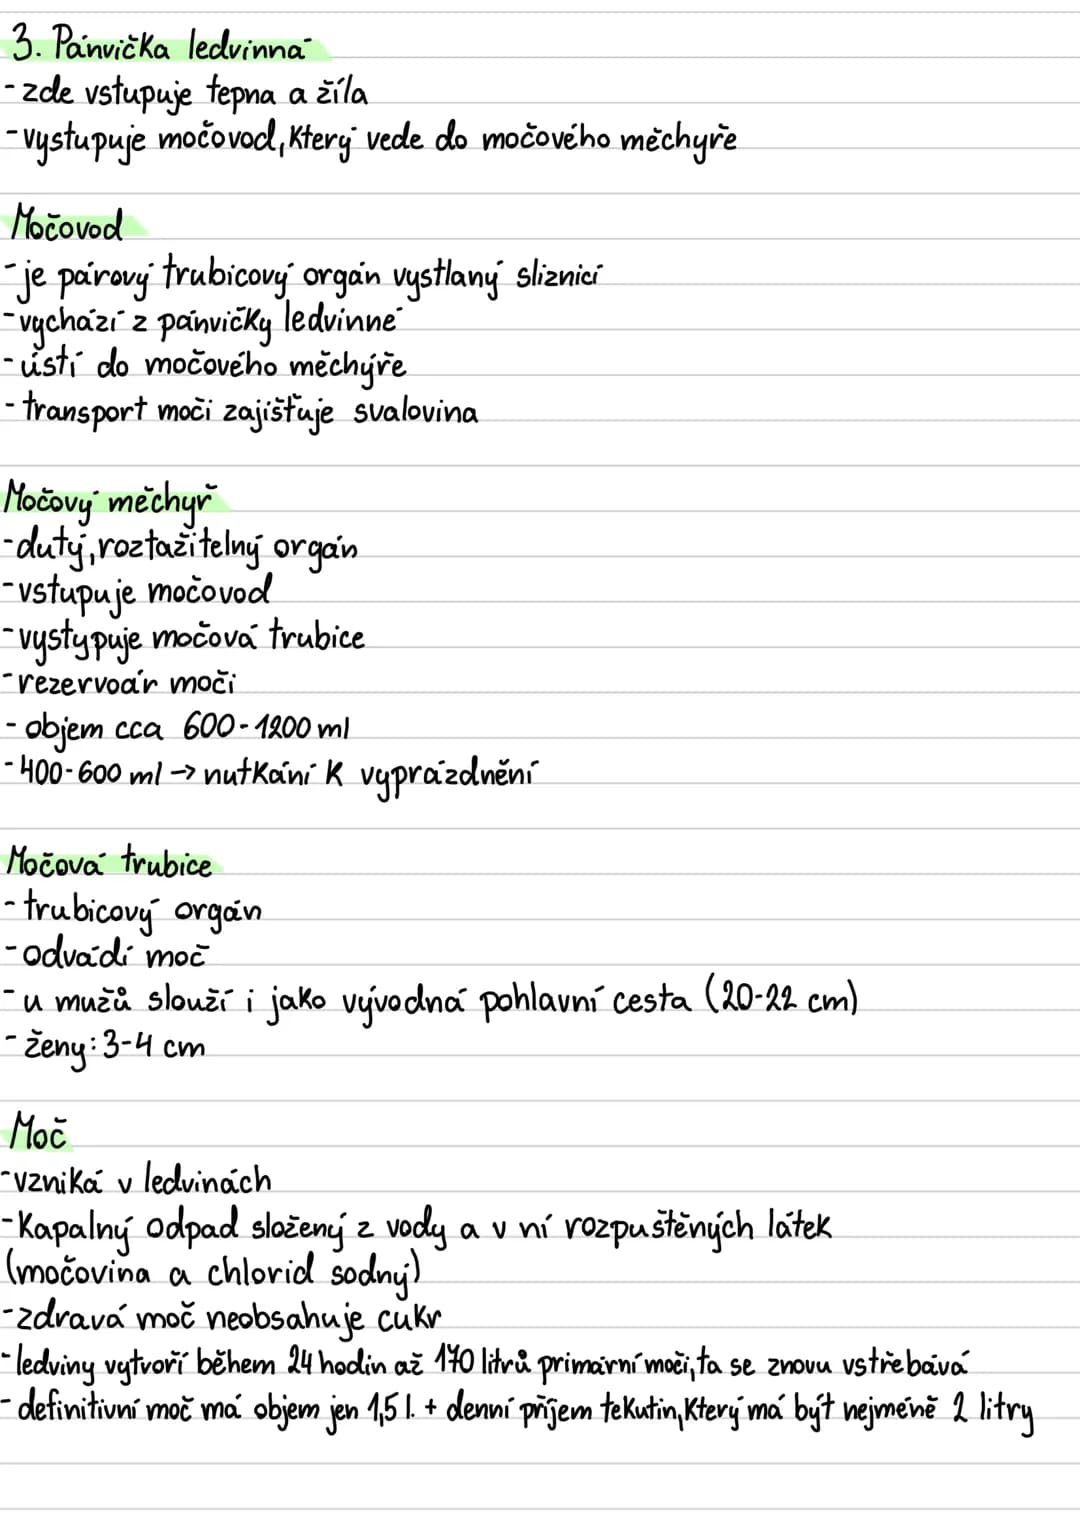 3. Pánvička ledvinná
-zde vstupuje tepna a žíla
-vystupuje močovod, který vede do močového měchyře
Močovod
-je párový trubicový orgán vystlaný sliznicí
-vychází z pánvičky ledvinné
-ústí do močového měchýře
-transport moči zajišťuje svalovina
Močový měchyř
-dutý, roztažitelný orgán
-vstupuje močovod
-vystypuje močová trubice
-rezervoár moči
- objem cca 600-1200 ml
-400-600 ml → nutkání k vyprázdnění
Močová trubice
-trubicový orgán
-odvádí moč
-u mužů slouží i jako vývodná pohlavní cesta (20-22 cm)
-ženy: 3-4 cm
Moč
-vzniká v ledvinách
-kapalný odpad složený z vody a v ní rozpuštěných látek
(močovina a chlorid sodný)
-zdravá moč neobsahuje cukr
-ledviny vytvoří během 24 hodin až 170 litrů primární moči, ta se znovu vstřebává
- definitivní moč má objem jen 1,5 l. + denní příjem tekutin, který má být nejméně 2 litry